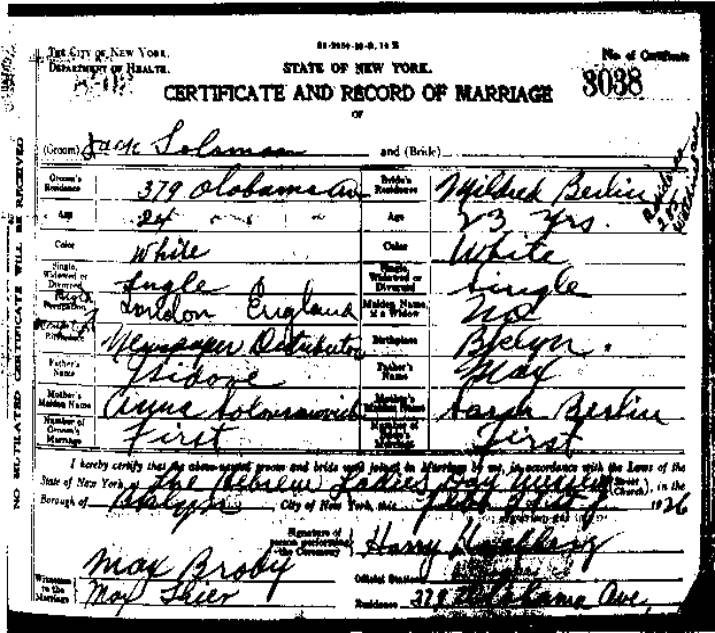 THE CITY OF NEW YORK.
DEPARTMENT OF HEALTH.
STATE OF NEW YORK.
No. of Certificate
3038
CERTIFICATE AND RECORD OF MARRIAGE
OF
(Groom) Jack Solomon and (Bride)
Groom's Residence 379 Alabama Av Bride's Residence Mildred Berlin
Residence 203
Age 24 Age 23 yrs.
Color White Color White
Single, Widowed or Divorced Single Single, Widowed or Divorced Single
London England Maiden Name, if a Widow No
Birthplace Newspaper Distributor Birthplace Bklyn.
Father's Name Isidore Father's Name Max
Mother's Maiden Name Anna Mother's Maiden Name Sarah Berlin
Number of Groom's Marriage First Number of Bride's Marriage First
I hereby certify that the above-named groom and bride were joined in Marriage by me, in accordance with the Laws of the
State of New York, at The Hebrew Ladies Day Nursery (Street Church), in the
Borough of Bklyn, City of New York, this 1926
Signature of person performing the Ceremony Harry
Max Broby
Witnesses to the Marriage Max Official Station
Residence Alabama Ave,
NO MUTILATED CERTIFICATE WILL BE RECEIVED